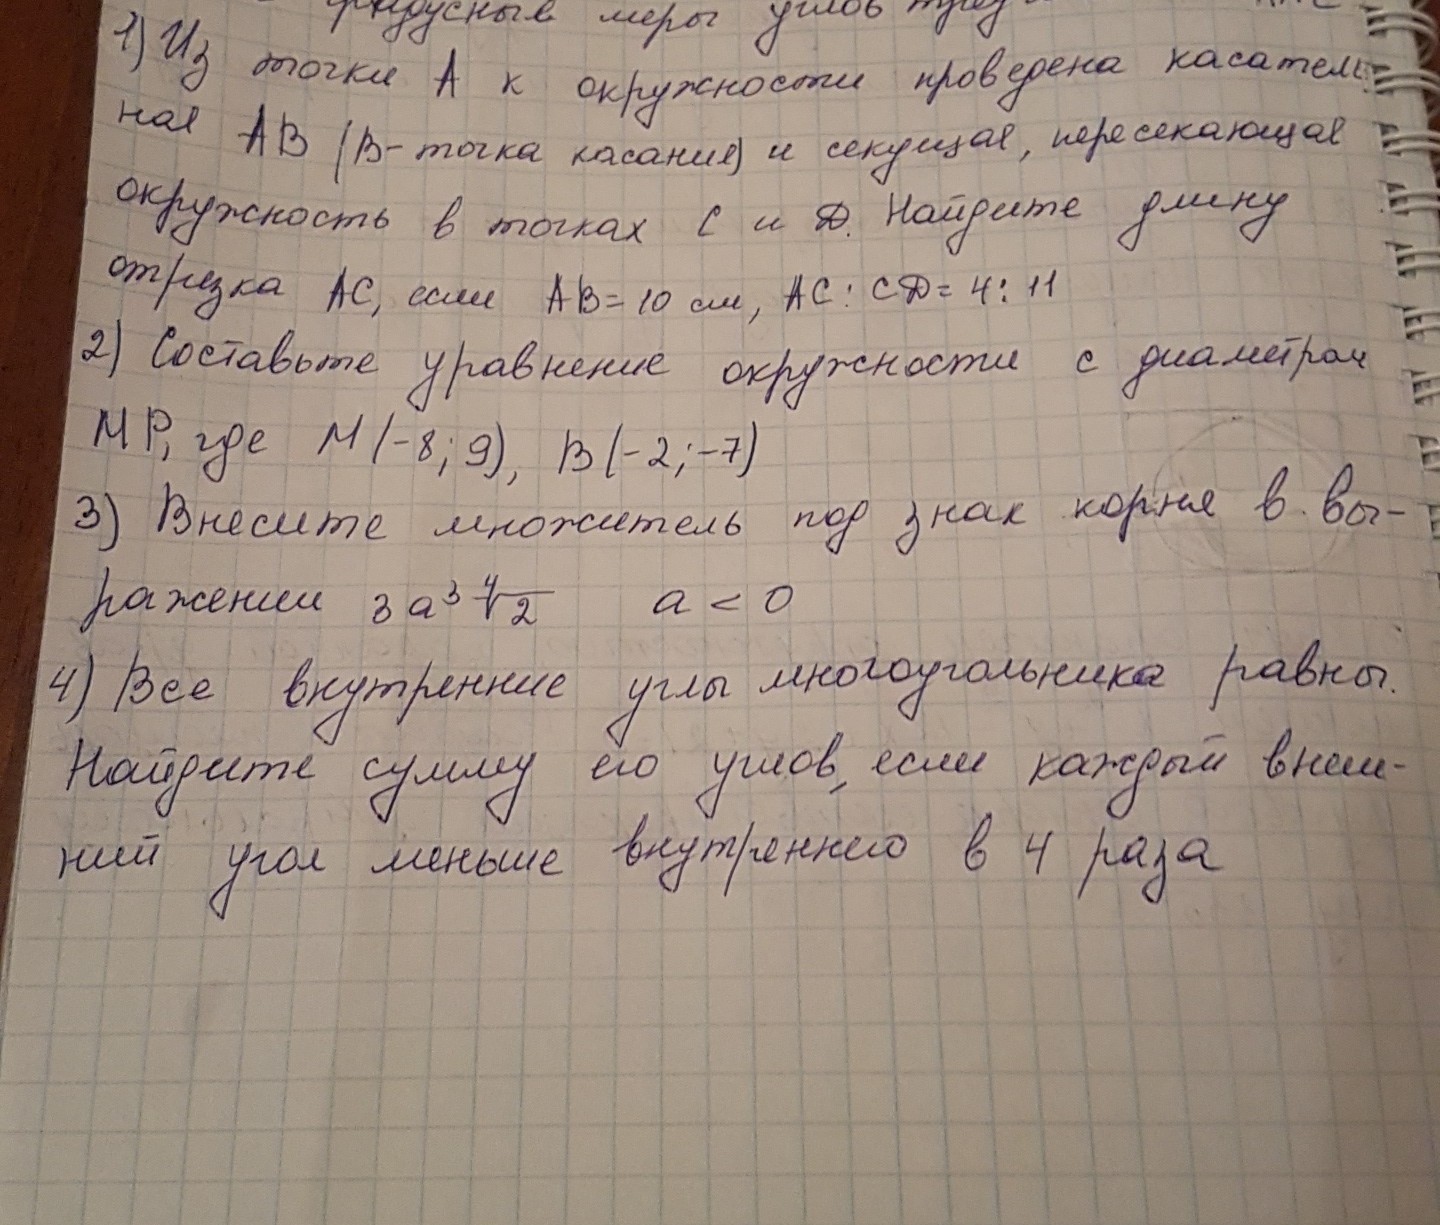 градусные меры углов
1) Из точки А к окружности проведена касатель-
ная АВ (В-точка касания) и секущая, пересекающая
окружность в точках С и D. Найдите длину
отрезка АС, если АВ=10 см, АС:СD=4:11
2) Составьте уравнение окружности с диаметром
МР, где М(-8;9), В(-2;-7)
3) Внесите множитель под знак корня в вы-
ражении 3a³∜2 a<0
4) Все внутренние углы многоугольника равны.
Найдите сумму его углов, если каждый внеш-
ний угол меньше внутреннего в 4 раза